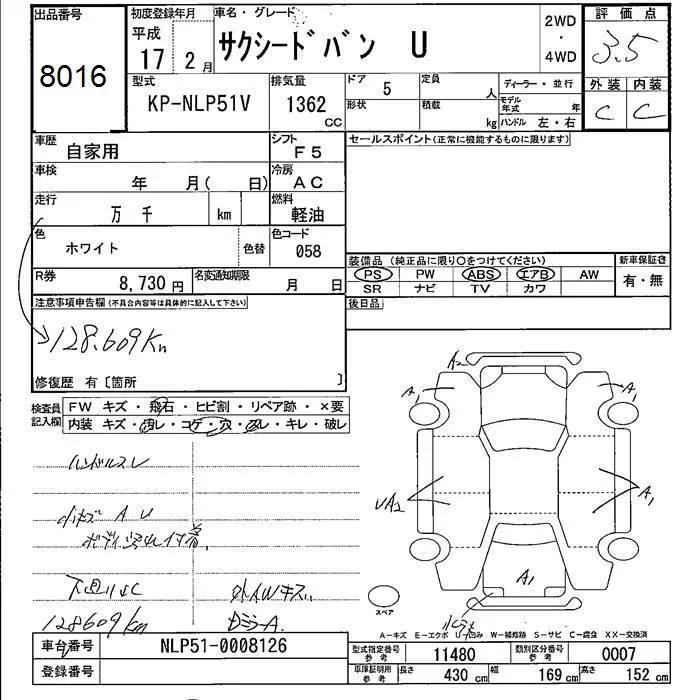 出品番号
8016
初度登録年月
平成
17 2月
車名・グレード
サクシードバン U
2WD
・
4WD
評価点
3.5
外装 内装
C C
型式
KP-NLP51V
排気量
1362
CC
ドア 5
定員 人
形状
積載 kg
ディーラー・並行
モデル年式 年
ハンドル 左・右
車歴
自家用
シフト
F5
セールスポイント(正常に機能するものに限ります)
車検
年 月( 日)
冷房
AC
走行
万 千 km
燃料
軽油
色
ホワイト
色替
色コード
058
装備品 (純正品に限り○をつけてください)
新車保証書
PS PW ABS エアB AW
SR ナビ TV カワ
有・無
R券
8,730 円
名変通知期限
月 日
後日品
注意事項申告欄(不具合内容等は具体的に記入して下さい)
128.609Km
修復歴 有〔箇所 〕
検査員記入欄
FW キズ・飛石・ヒビ割・リペア跡・×要
内装 キズ・汚レ・コゲ・穴・スレ・キレ・破レ
ハンドルスレ
小キズ A U
付着
下廻りSC
外AWキズ
128609km
DミラーA.
A2
A1
A1
UA2
A1
A1
スペア
A-キズ E-エクボ U-凹み W-補修跡 S-サビ C-腐食 XX-交換済
車台番号
NLP51-0008126
登録番号
型式指定番号
参考
11480
類別区分番号
参考
0007
車庫証明用
参考
長さ 430 cm
幅 169 cm
高さ 152 cm